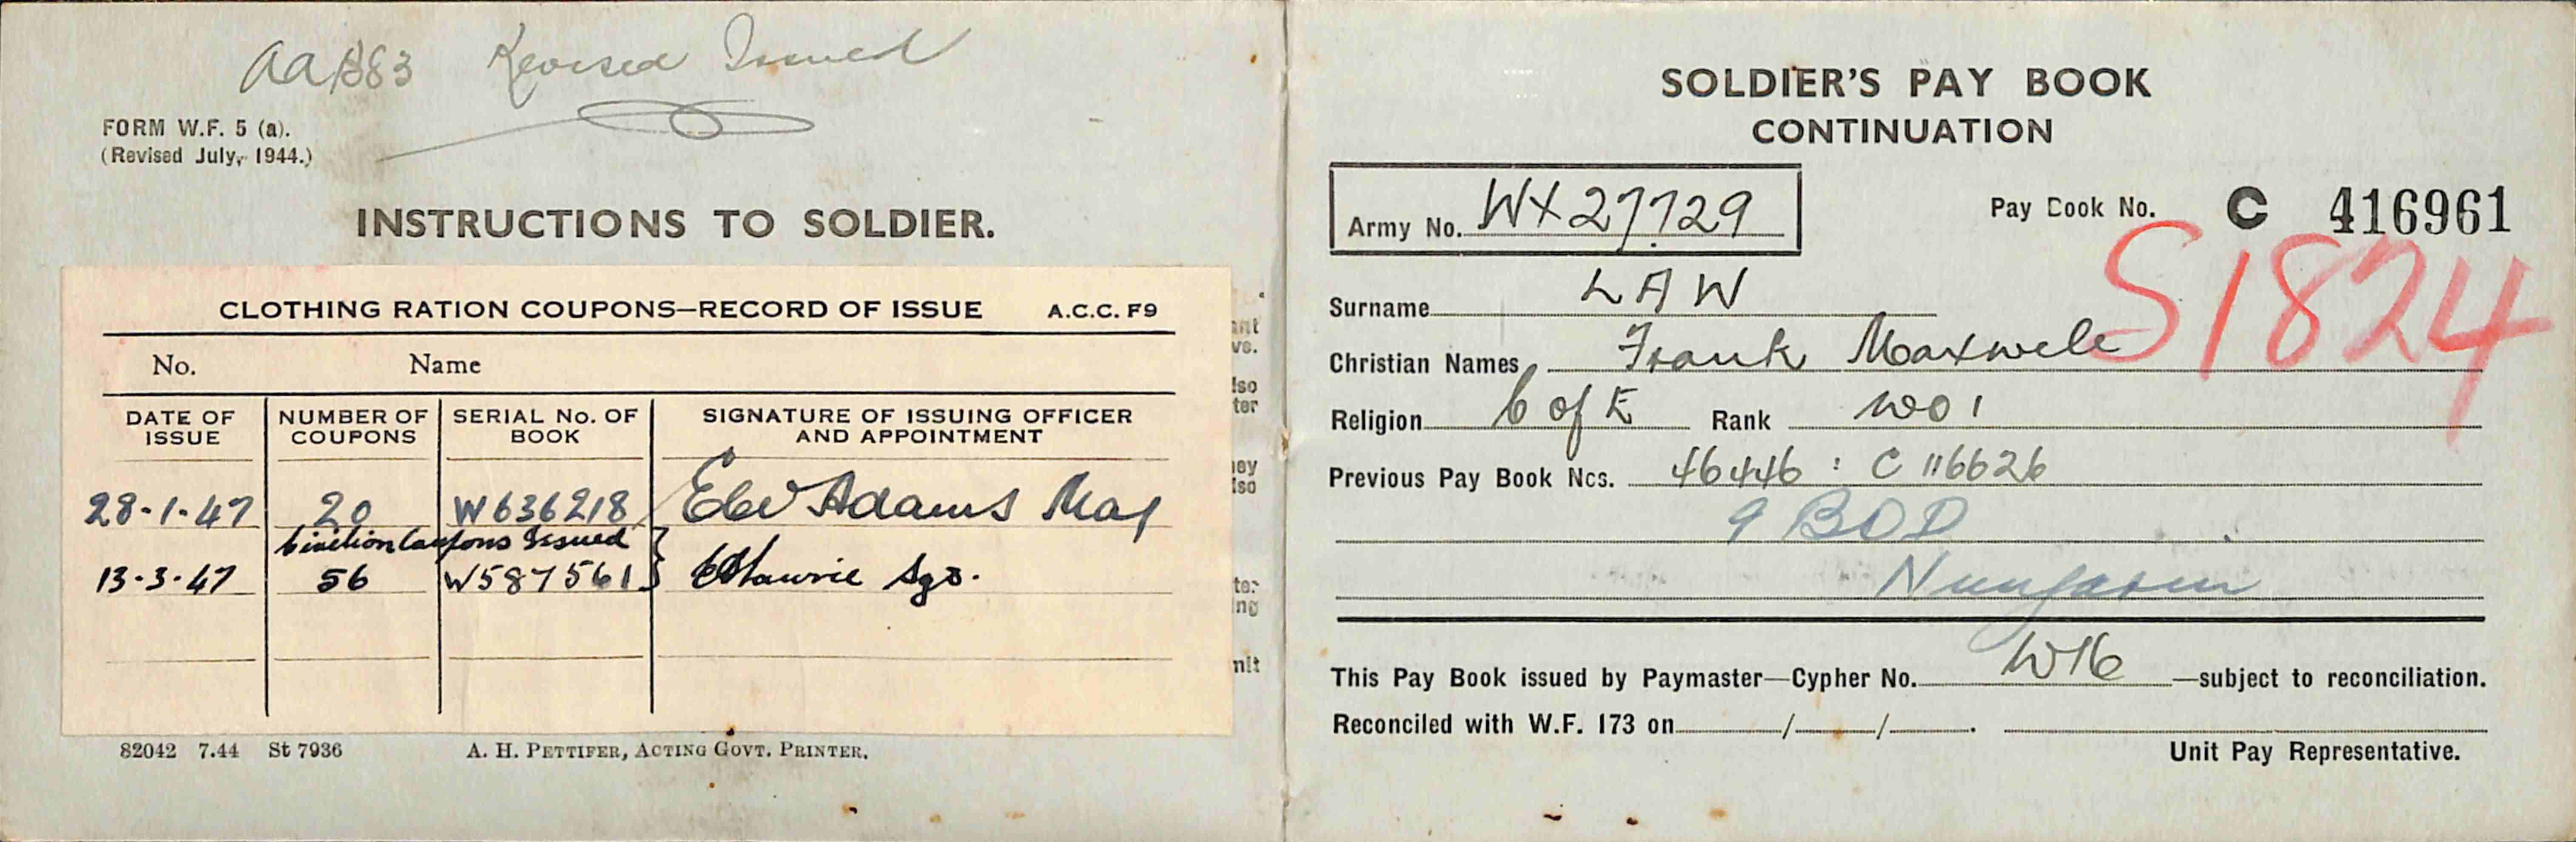 AAB83 Revised Issued
FORM W.F. 5 (a).
(Revised July, 1944.)
INSTRUCTIONS TO SOLDIER.
CLOTHING RATION COUPONS—RECORD OF ISSUE A.C.C. F9
No. Name
DATE OF ISSUE NUMBER OF COUPONS SERIAL No. OF BOOK SIGNATURE OF ISSUING OFFICER AND APPOINTMENT
28-1-47 20 W636218 Adams Maj
Civilian Coupons Issued
13-3-47 56 W587561 Sgt.
82042 7.44 St 7936 A. H. PETTIFER, ACTING GOVT. PRINTER.
SOLDIER'S PAY BOOK
CONTINUATION
Army No. WX27729
Pay Book No. C 416961
S1824
Surname LAW
Christian Names Frank Maxwell
Religion C of E Rank WO1
Previous Pay Book Nos. 46446 : C 116626
9 BOD
This Pay Book issued by Paymaster—Cypher No. W16 —subject to reconciliation.
Reconciled with W.F. 173 on / / .
Unit Pay Representative.